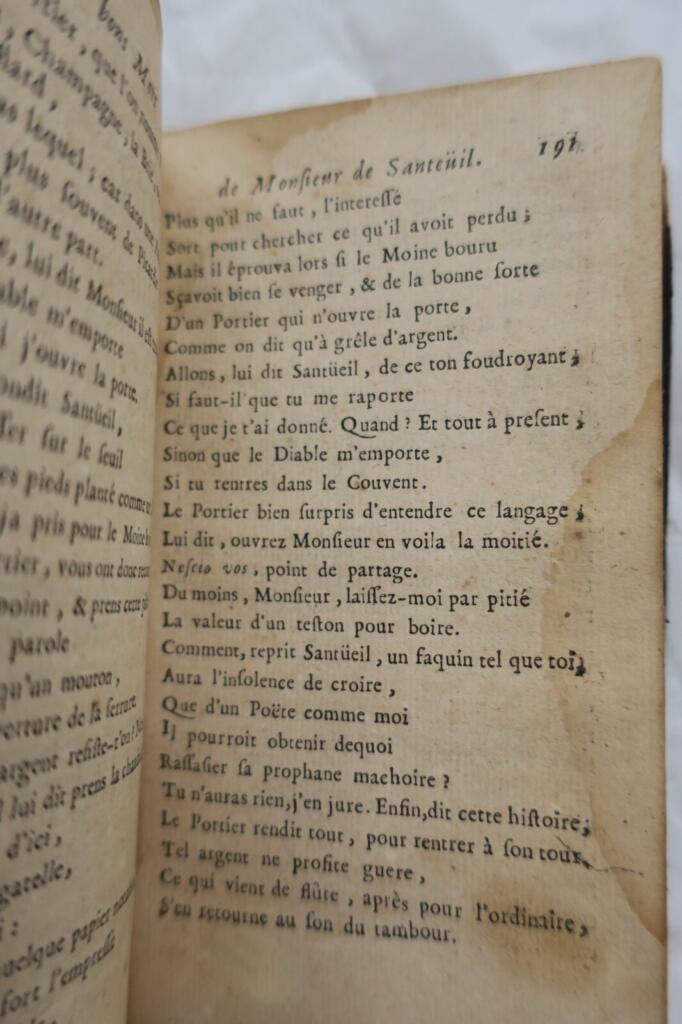 bons
que l'on
Champagne, la
lequel ; car dans
plus souvent de
l'autre part.
lui dit Monsieur il
m'emporte
j'ouvre la porte.
Santüeil,
sur le seuil
pieds planté comme
pris pour le Moine
vous ont donc
point, & prens cette
parole
qu'un mouton,
de la serrure
argent resiste-t'on ?
lui dit prens la
d'ici,
quelque papier
fort l'empresse
de Monſieur de Santeüil. 191
Plus qu'il ne faut, l'intereſſé
Sort pour chercher ce qu'il avoit perdu ;
Mais il éprouva lors ſi le Moine bouru
Sçavoit bien ſe venger, & de la bonne ſorte
D'un Portier qui n'ouvre la porte,
Comme on dit qu'à grêle d'argent.
Allons, lui dit Santüeil, de ce ton foudroyant ;
Si faut-il que tu me raporte
Ce que je t'ai donné. Quand ? Et tout à preſent ;
Sinon que le Diable m'emporte,
Si tu rentres dans le Couvent.
Le Portier bien ſurpris d'entendre ce langage ;
Lui dit, ouvrez Monſieur en voila la moitié.
Neſcio vos, point de partage.
Du moins, Monſieur, laiſſez-moi par pitié
La valeur d'un teſton pour boire.
Comment, reprit Santüeil, un faquin tel que toi,
Aura l'inſolence de croire,
Que d'un Poëte comme moi
Il pourroit obtenir dequoi
Raſſaſier ſa prophane machoire ?
Tu n'auras rien, j'en jure. Enfin, dit cette hiſtoire,
Le Portier rendit tout, pour rentrer à ſon tour,
Tel argent ne profite guere,
Ce qui vient de flûte, après pour l'ordinaire,
S'en retourne au ſon du tambour.